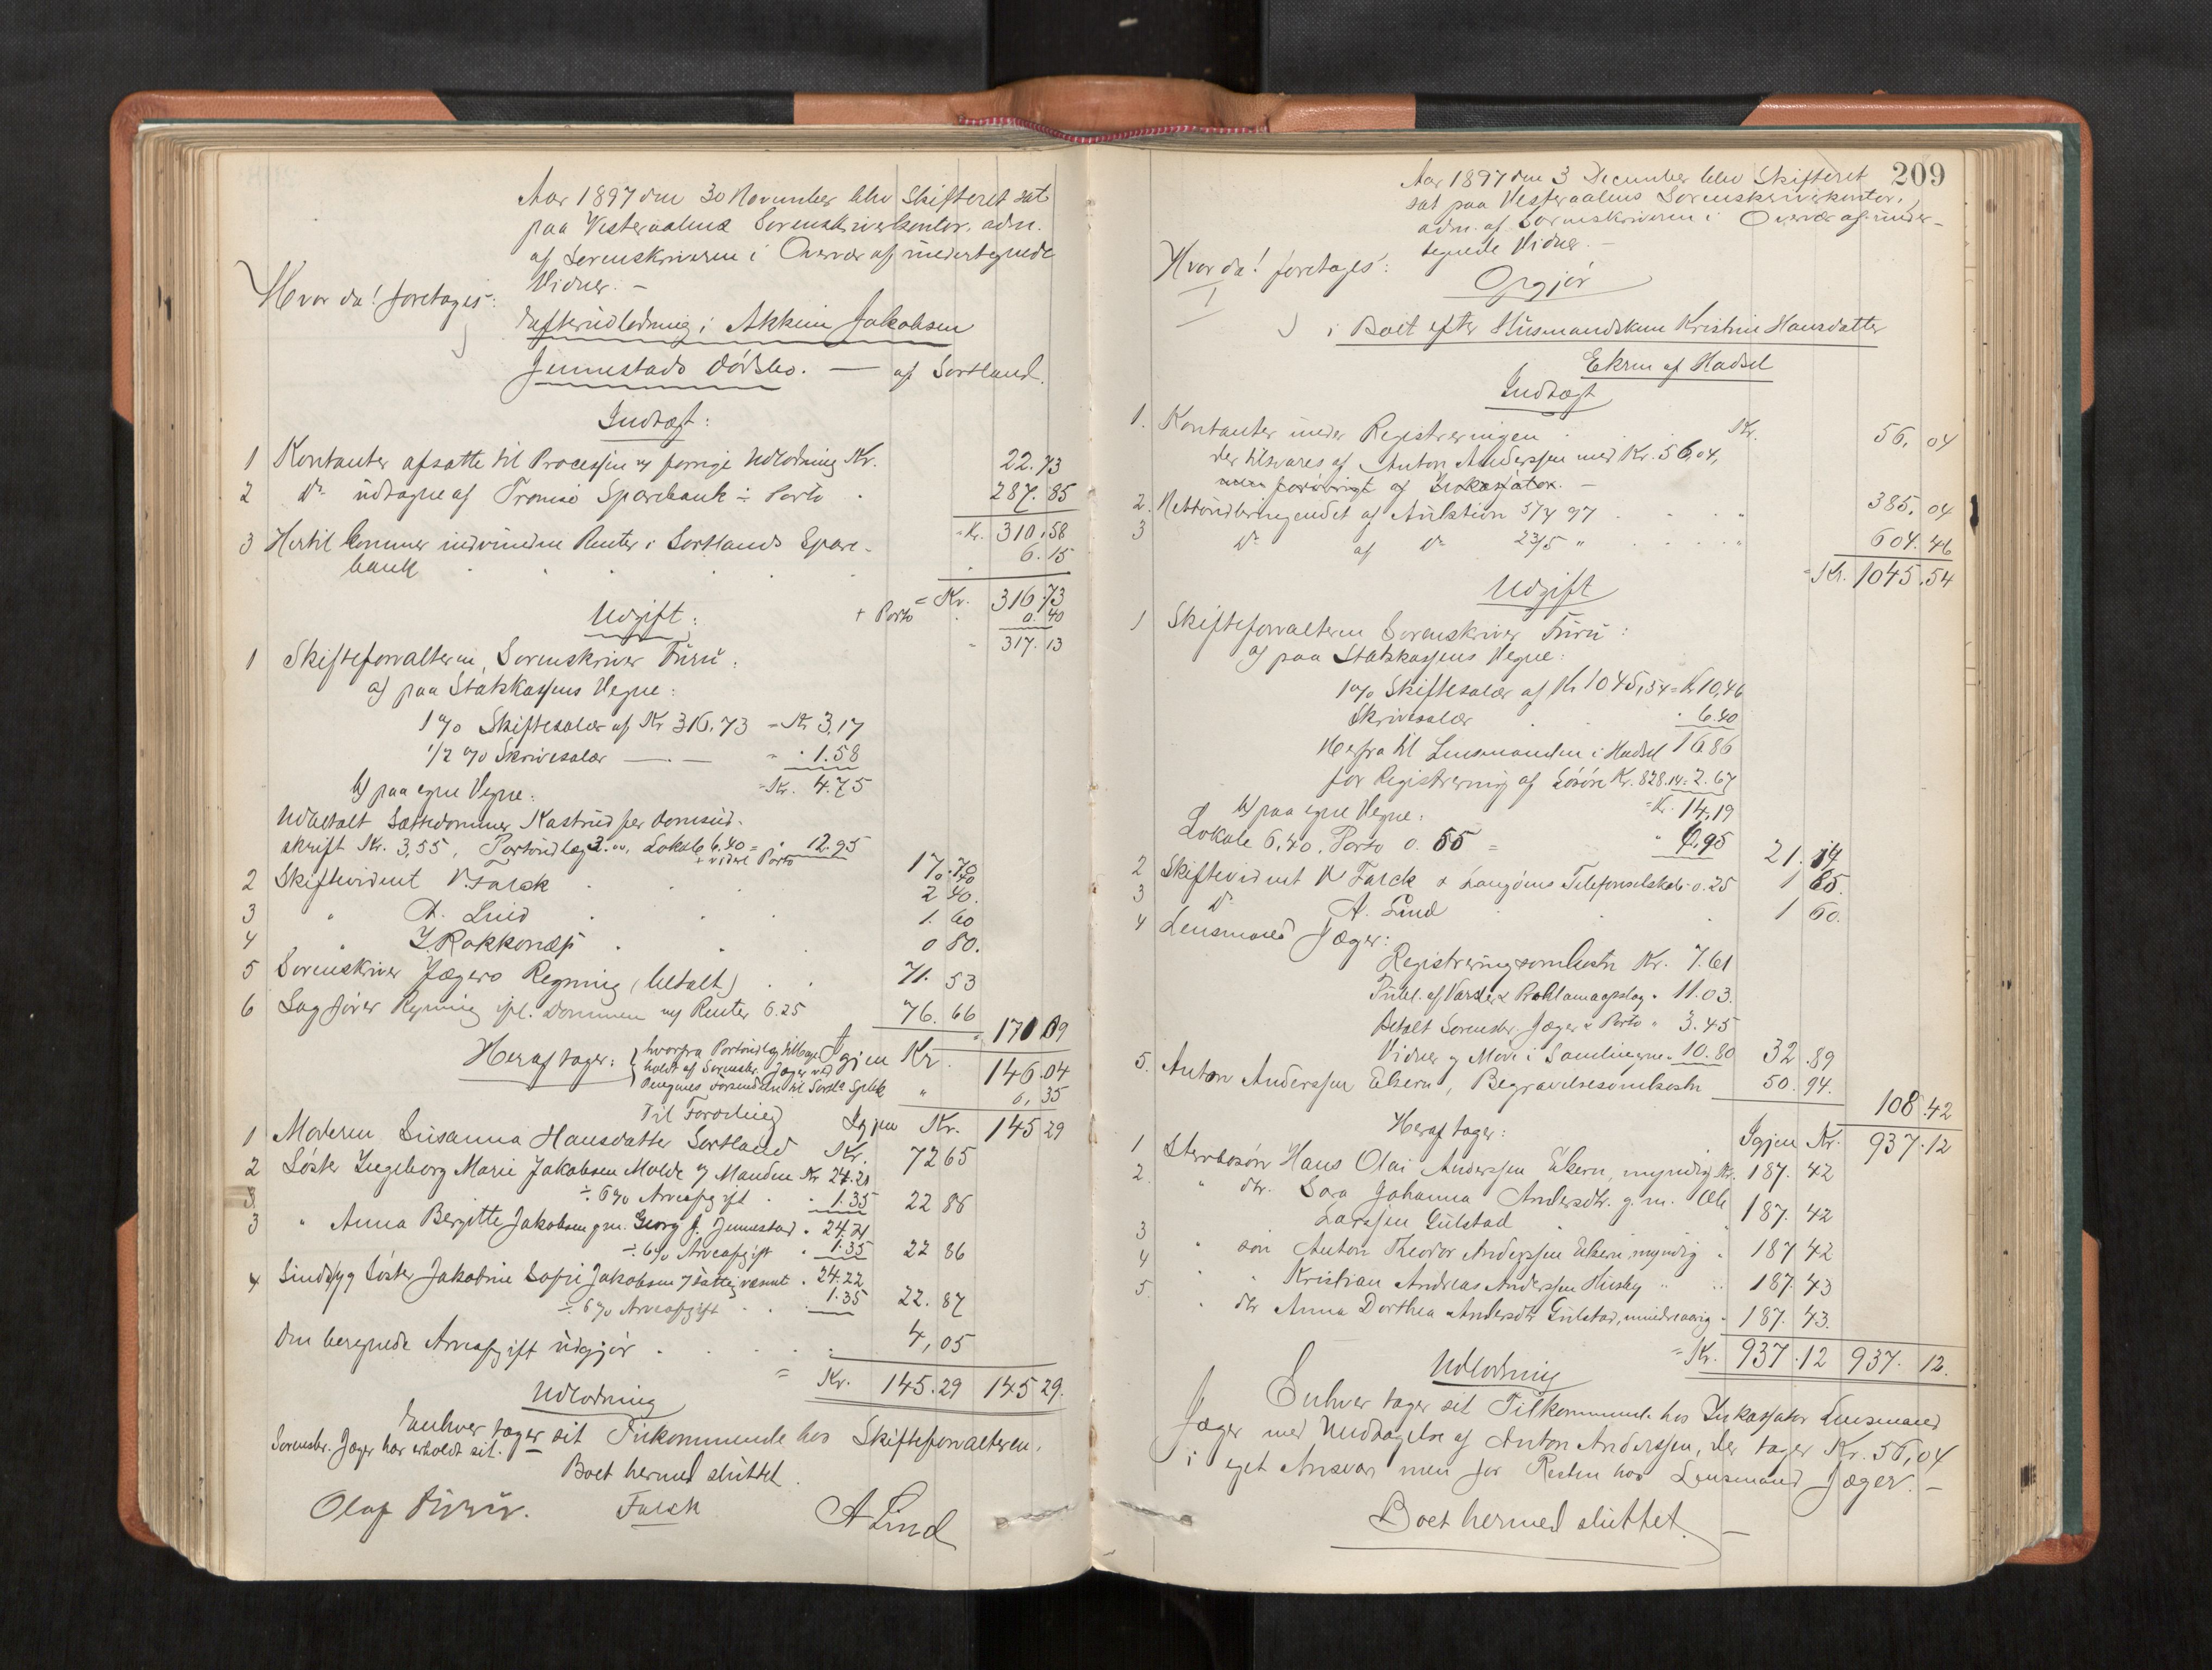 Aar 1897 den 30 November blev Skifteret sat
paa Vesteraalens Sorenskriverkontor, adm.
af Sorenskriveren i Overvær af undertegnede
Vidner. –
Hvor da! foretages:
Efterudlodning i Akkim Jakobsen
Jennestads dødsbo. — af Sortland.
Indtægt:
1 Kontanter afsatte til Processen vf forrige Udlodning Kr. 22.73
2 do udtagne af Tromsø Sparebank ÷ Porto 287.85
= Kr. 310.58
3 Hertil kommer indvundne Renter i Sortlands Spare-
bank 6.15
= Kr. 316.73
Udgift: + Porto 0.40
317.13
1 Skifteforvalteren, Sorenskriver Furu:
a) paa Statskassens Vegne:
1 % Skiftesalær af Kr 316,73 = Kr 3,17
1/2 % Skrivesalær — 1.58
= Kr. 4.75
b) paa egne Vegne:
Udbetalt Sættedommer Kastrud for domsud-
skrift Kr. 3,55, Portoudlæg 3.00, Lokale 6.40 = 12.95
+ videre Porto 17.70
0.40
2 Skiftevidnet V. Falck 2 40.
3 " A. Lind 1. 60
4 " J. Rokkonæs 0 80.
5 Sorenskriver Jægers Regning (betalt) 71. 53
6 Sagfører Regning ifl. Dommen vf Renter 6.25 76. 66
171 09
Heraf tager: Igjen Kr. 146.04
hvorfra Portoudlæg tilbage-
holdt af Sorenskr. Jæger ved
Pengenes Forsendelse til Sortl. Spbk 0,35
Til Fordeling Igjen Kr. 145 29
1 Moderen Susanna Hansdatter Sortland Kr. 72 65
2 Søster Ingeborg Marie Jakobsen Molde g Manden Kr 24.21
÷ 6% Arveafgift 1.35 22 86
3.
3 " Anna Bergitte Jakobsen gm. Georg J. Jennestad 24.21
÷ 6% Arveafgift 1.35 22 86
4 Sindssyg Søster Jakobine Sofie Jakobsen 24.22
÷ 6% Arveafgift 1.35 22. 87
Den beregnede Arveafgift udgjør 4,05
= Kr. 145.29 145 29.
Udlodning
Enhver tager sit Tilkommende hos Skifteforvalteren.
Sorenskr. Jæger har erholdt sit.
Boet hermed sluttet.
Olaf Furu. Falck A Lind
209
Aar 1897 den 3 December blev Skifteret
sat paa Vesteraalens Sorenskriverkontor,
adm. af Sorenskriveren i Overvær af under-
tegnede Vidner. –
Hvor da! foretages:
I
Opgjør
i Boet efter Husmandskone Kristine Hansdatter
Ekren af Hadsel
Indtægt
1. Kontanter under Registreringen Kr. 56, 04
der tilsvares af Anton Anderssen med Kr. 56,04,
men forøvrigt af Inkassator. –
2. Nettoudbringendet af Auktion 5/4 97 385. 04
3 do af do 23/5 " 604.46
= Kr. 1045.54
Udgift
1 Skifteforvalteren Sorenskriver Furu:
a) paa Statskassens Vegne:
1 % Skiftesalær af Kr 1045,54 = Kr 10,46
Skrivesalær 6.40
16.86
Herfra til Lensmanden i Hadsel
for Registrering af Løsøre Kr. 828.14 = 2.67
= Kr. 14,19
b) paa egne Vegne:
Lokale 6,40, Porto 0. 55 = 6,95 21. 14
2 Skiftevidnet V Falck & Langøens Telefonselskab 0.25 1 85.
3 do A. Lind 1 60.
4 Lensmand Jæger:
Registreringsomkostn Kr. 7.61
Publ. af Varsler & Proklamaopslag 11.03.
Betalt Sorenskr. Jæger & Porto 3.45
Vidner g Møde i Samlingerne 10.80 32 .89
5. Anton Anderssen Ekern, Begravelsesomkostn 50. 94.
108.42
Heraf tager: Igjen Kr. 937.12
1 Sterbosøn Hans Olai Anderssen Ekern, myndig Kr. 187. 42
2. " dtr. Sara Johanna Andersdtr. g. m. Ole
Larssen Gulstad 187. 42
3 " søn Anton Theodor Anderssen Ekern, myndig 187 42
4 " " Kristian Andreas Anderssen Husby 187. 43
5. " dtr Anna Dorthea Andersdtr Gulstad, mindreaarig 187. 43.
= Kr. 937.12 937. 12.
Udlodning
Enhver tager sit Tilkommende hos Inkassator Lensmand
Jæger med Undtagelse af Anton Anderssen, der tager Kr. 56,04
i eget Ansvar men for Resten hos Lensmand Jæger. –
Boet hermed sluttet. —